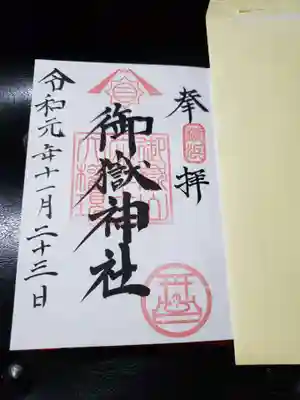 奉拝
御嶽神社
令和元年十一月二十三日